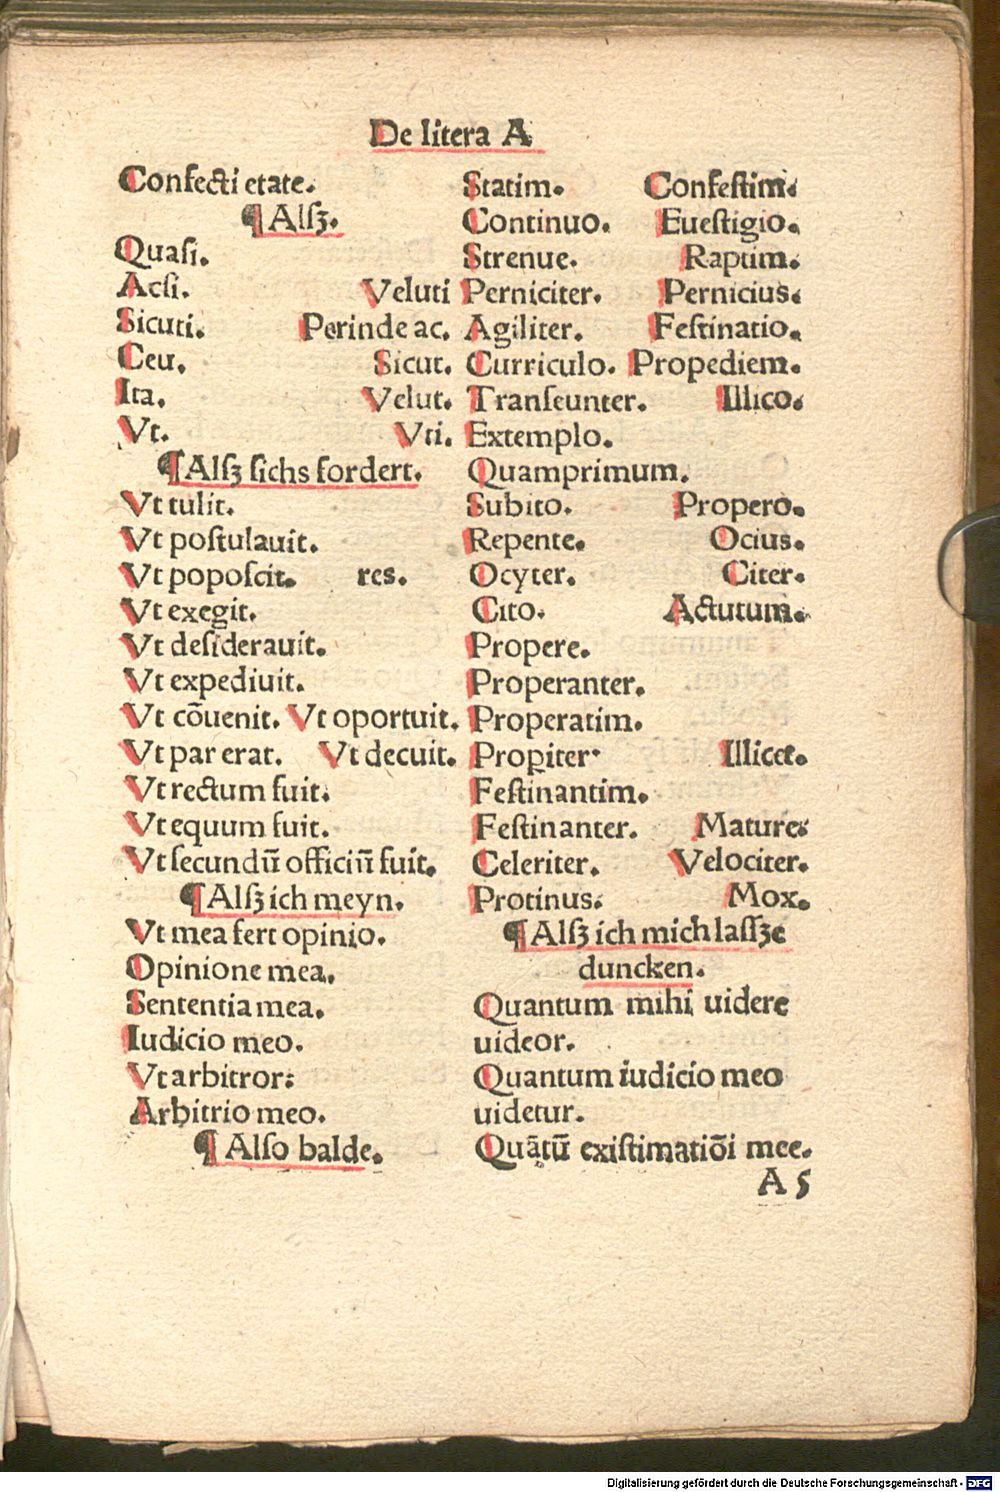 De litera A
Confecti etate.
¶ Alſʒ.
Quasi.
Acsi. Veluti
Sicuti. Perinde ac.
Ceu. Sicut.
Ita. Velut.
Vt. Vti.
¶ Alſʒ ſichs fordert.
Vt tulit.
Vt poſtulauit.
Vt popoſcit. res.
Vt exegit.
Vt deſiderauit.
Vt expediuit.
Vt cōuenit. Vt oportuit.
Vt par erat. Vt decuit.
Vt rectum fuit.
Vt equum fuit.
Vt ſecundū officiū fuit.
¶ Alſʒ ich meyn.
Vt mea fert opinio.
Opinione mea.
Sententia mea.
Iudicio meo.
Vt arbitror:
Arbitrio meo.
¶ Alſo balde.
Statim. Confeſtim.
Continuo. Eueſtigio.
Strenue. Raptim.
Perniciter. Pernicius.
Agiliter. Feſtinatio.
Curriculo. Propediem.
Tranſeunter. Illico.
Extemplo.
Quamprimum.
Subito. Propero.
Repente. Ocius.
Ocyter. Citer.
Cito. Actutum.
Propere.
Properanter.
Properatim.
Propiter. Illicet.
Feſtinantim.
Feſtinanter. Mature:
Celeriter. Velociter.
Protinus: Mox.
¶ Alſʒ ich mich laſſʒe
duncken.
Quantum mihi uidere
uideor.
Quantum iudicio meo
uidetur.
Quātū exiſtimatiōi mee.
A 5
Digitalisierung gefördert durch die Deutsche Forschungsgemeinschaft - DFG